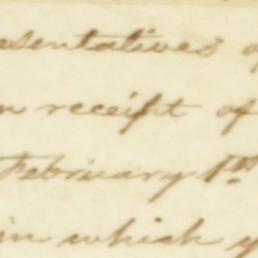 esentatives of
n receipt of
February 1st
in which y